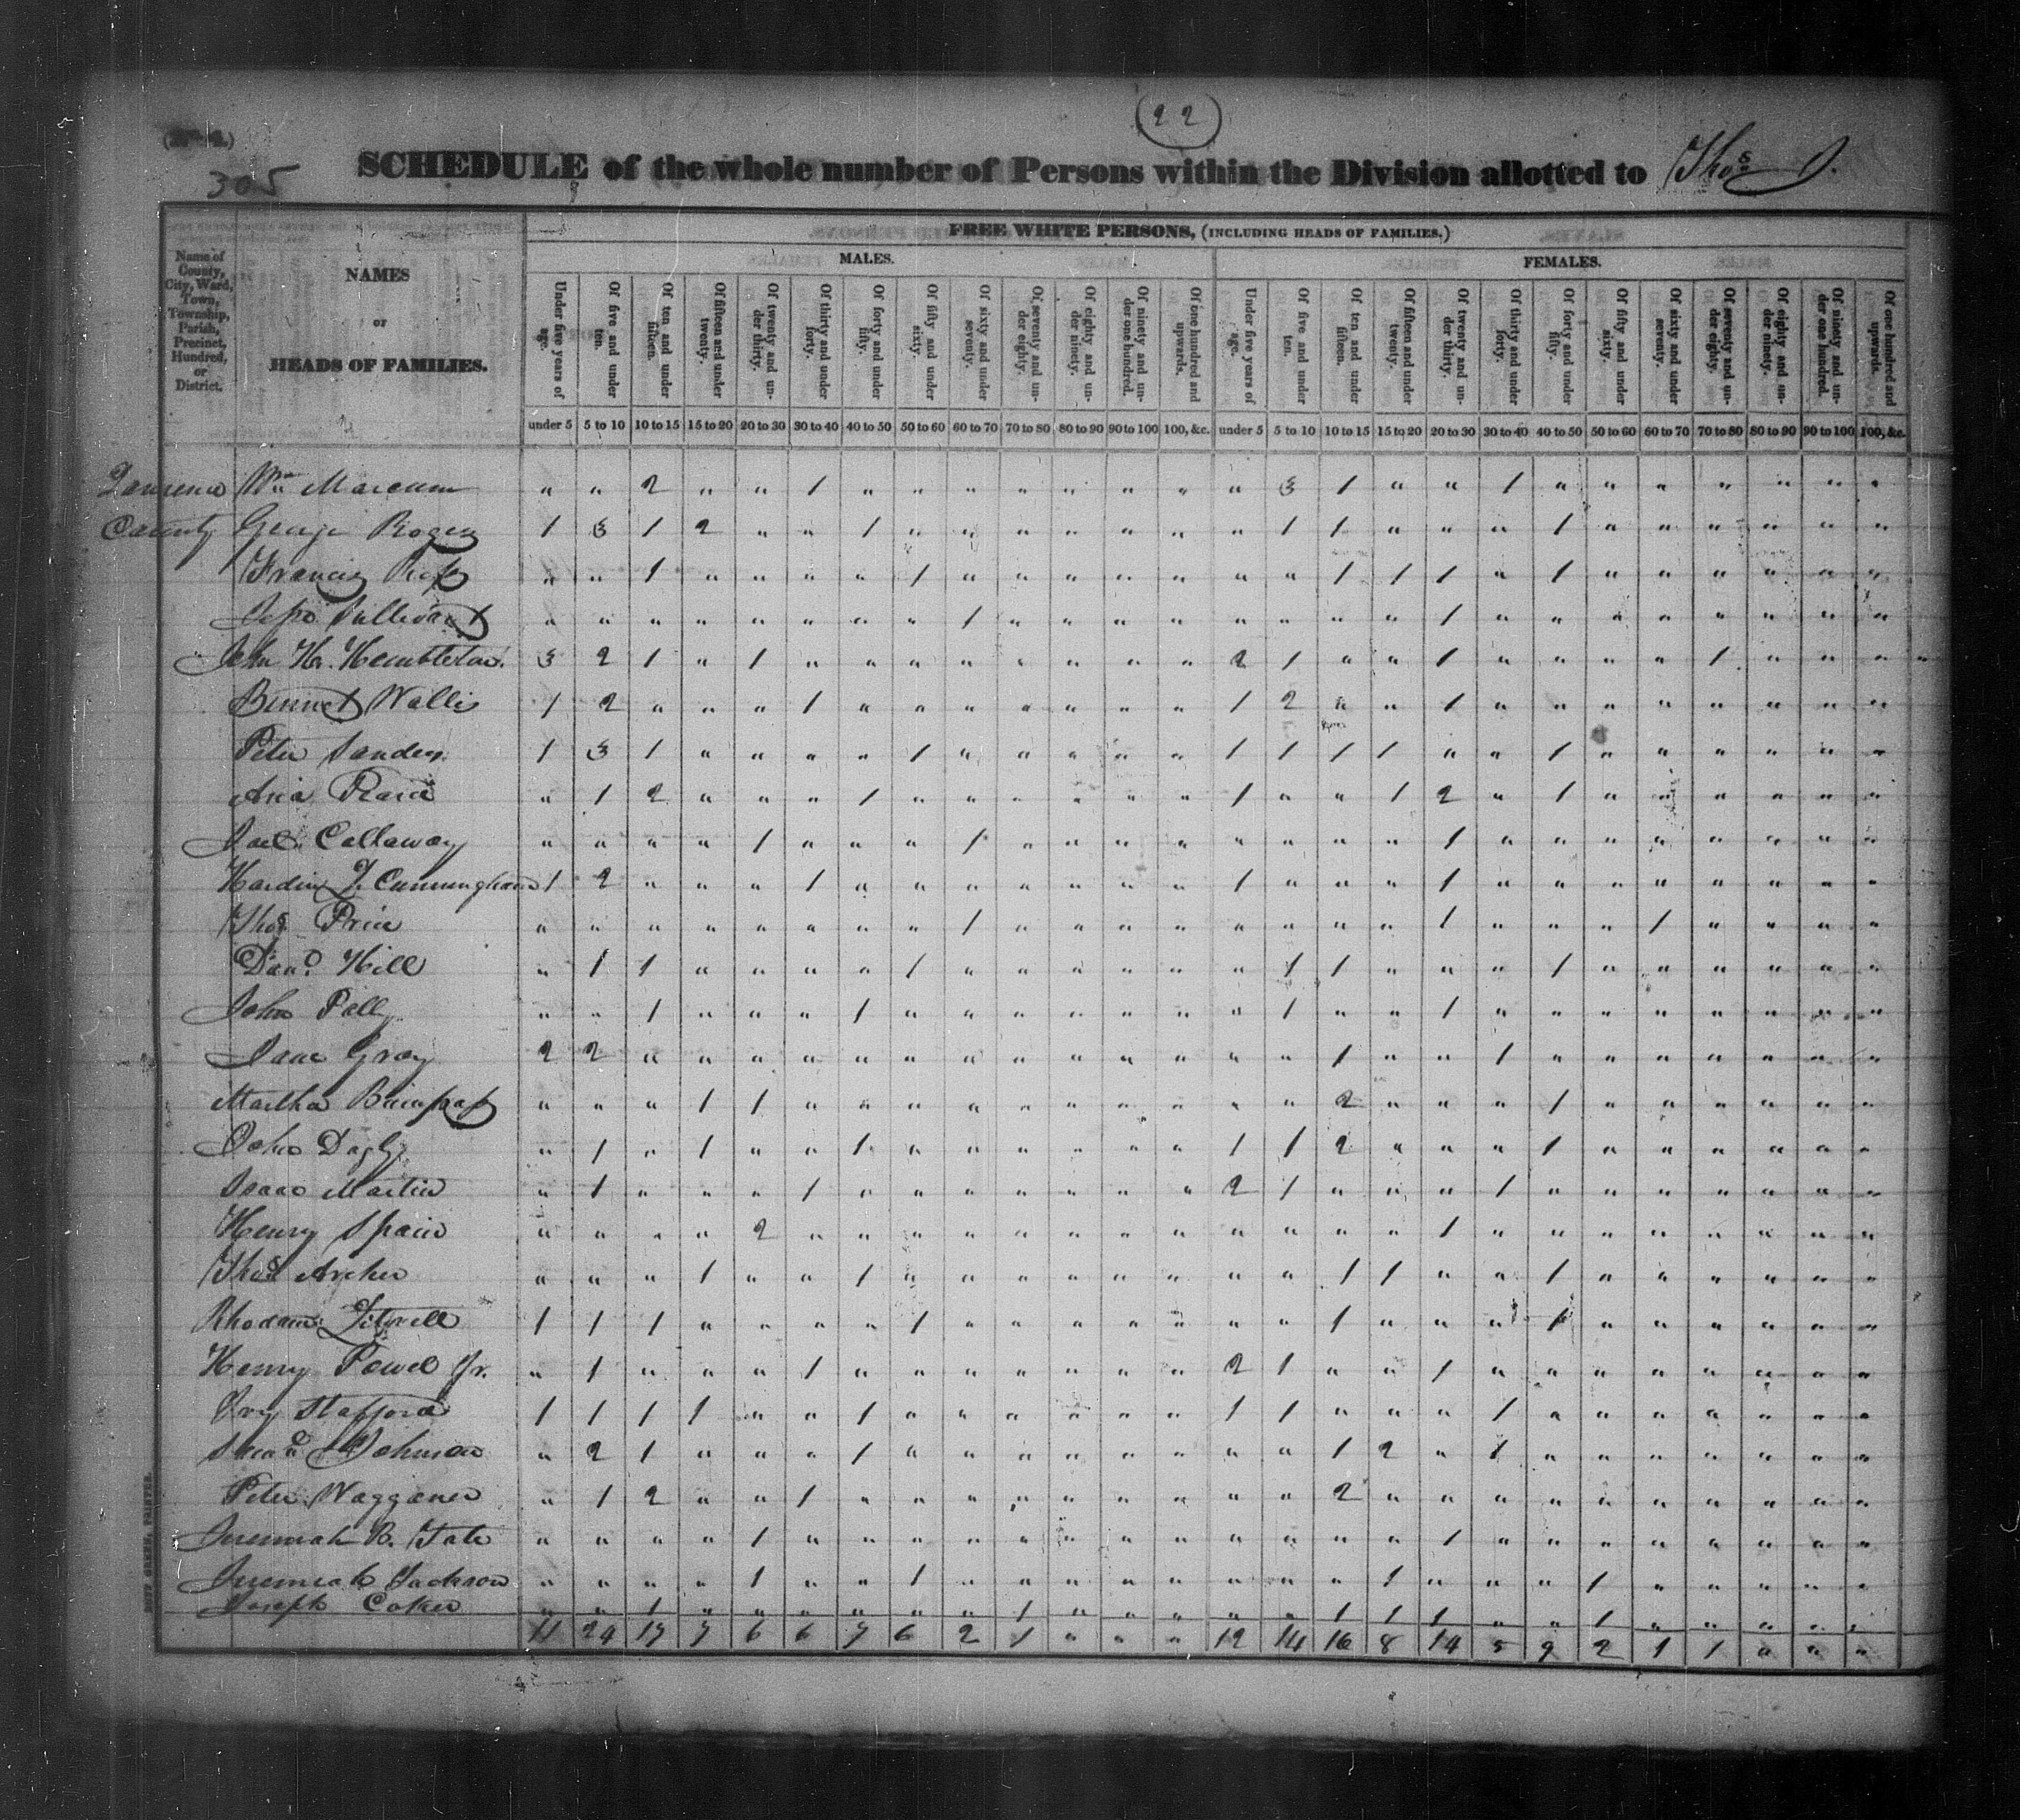 (22)
305
SCHEDULE of the whole number of Persons within the Division allotted to Thos J.
FREE WHITE PERSONS, (INCLUDING HEADS OF FAMILIES.)
MALES. FEMALES.
Name of County, City, Ward, Town, Township, Parish, Precinct, Hundred, or District.
NAMES
or
HEADS OF FAMILIES.
Under five years of age. Of five and under ten. Of ten and under fifteen. Of fifteen and under twenty. Of twenty and under thirty. Of thirty and under forty. Of forty and under fifty. Of fifty and under sixty. Of sixty and under seventy. Of seventy and under eighty. Of eighty and under ninety. Of ninety and under one hundred. Of one hundred and upwards. Under five years of age. Of five and under ten. Of ten and under fifteen. Of fifteen and under twenty. Of twenty and under thirty. Of thirty and under forty. Of forty and under fifty. Of fifty and under sixty. Of sixty and under seventy. Of seventy and under eighty. Of eighty and under ninety. Of ninety and under one hundred. Of one hundred and upwards.
under 5 5 to 10 10 to 15 15 to 20 20 to 30 30 to 40 40 to 50 50 to 60 60 to 70 70 to 80 80 to 90 90 to 100 100, &c. under 5 5 to 10 10 to 15 15 to 20 20 to 30 30 to 40 40 to 50 50 to 60 60 to 70 70 to 80 80 to 90 90 to 100 100, &c.
Lawrence Wm Marcum " " 2 " " 1 " " " " " " " " 3 1 " " 1 " " " " " " "
County George Rogers 1 3 1 2 " " 1 " " " " " " " 1 1 " " " 1 " " " " " "
Francis " " 1 " " " " 1 " " " " " " " 1 1 1 " 1 " " " " " "
Sullivant " " " " " " " " 1 " " " " " " " " 1 " " " " " " " "
John H. Hembleton. 3 2 1 " 1 " " " " " " " " 2 1 " " 1 " " " " 1 " " "
Bennet Wallis 1 2 " " " 1 " " " " " " " 1 2 " " 1 " " " " " " " "
Peter Sanders 1 3 1 " " " " 1 " " " " " 1 1 1 1 " " 1 " " " " " "
" 1 2 " " " 1 " " " " " " 1 " " 1 2 " 1 " " " " " "
Joel Callaway " " " " 1 " " " 1 " " " " " " " " 1 " " " " " " " "
Hardin T. Cunningham 1 2 " " " 1 " " " " " " " 1 " " " 1 " " " " " " " "
Thos Price " " " " " " " " 1 " " " " " " " " 1 " " " 1 " " " "
Hill " 1 1 " " " " 1 " " " " " " 1 1 " " " 1 " " " " " "
John " " 1 " " " 1 " " " " " " " 1 " " 1 " " " " " " " "
Jane Gray 2 2 " " " " " " " " " " " " " 1 " " 1 " " " " " " "
Martha " " " 1 1 " " " " " " " " " " 2 " " " 1 " " " " " "
John " 1 " 1 " " 1 " " " " " " 1 1 2 " " " 1 " " " " " "
Isaac Martin " 1 " " " 1 " " " " " " " 2 1 " " " 1 " " " " " " "
Henry Spain " " " " 2 " " " " " " " " " " " " 1 " " " " " " " "
Thos Archer " " " 1 " " 1 " " " " " " " " 1 1 " " 1 " " " " " "
1 1 1 " " " " 1 " " " " " " " 1 " " " 1 " " " " " "
Henry Powel Jr. " 1 " " " 1 " " " " " " " 2 1 " " 1 " " " " " " " "
Ivy Stafford 1 1 1 1 " " 1 " " " " " " 1 1 " " " 1 " " " " " " "
Johnson " 2 1 " " " 1 " " " " " " " " 1 2 " 1 " " " " " " "
Peter Waggoner " 1 2 " " 1 " " " " " " " " " 2 " " " " " " " " " "
Jeremiah B. Tate " " " " 1 " " " " " " " " " " " " 1 " " " " " " " "
Jeremiah Jackson " " " " 1 " " 1 " " " " " " " " 1 " " " 1 " " " " "
Joseph Coker " " 1 " " " " " " 1 " " " " " 1 1 1 " " 1 " " " " "
11 24 17 7 6 6 7 6 2 1 " " " 12 14 16 8 14 5 9 2 1 1 " " "